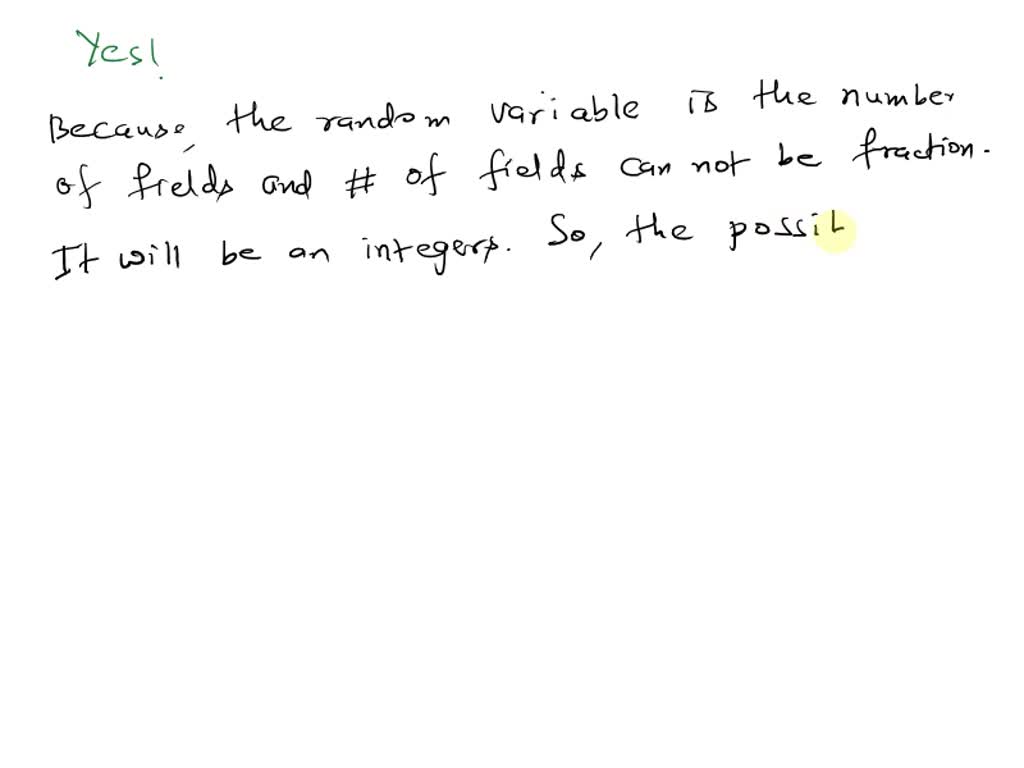 Yes!
Because, the random variable is the number
of fields and # of fields can not be fraction.
It will be an integers. So, the possib